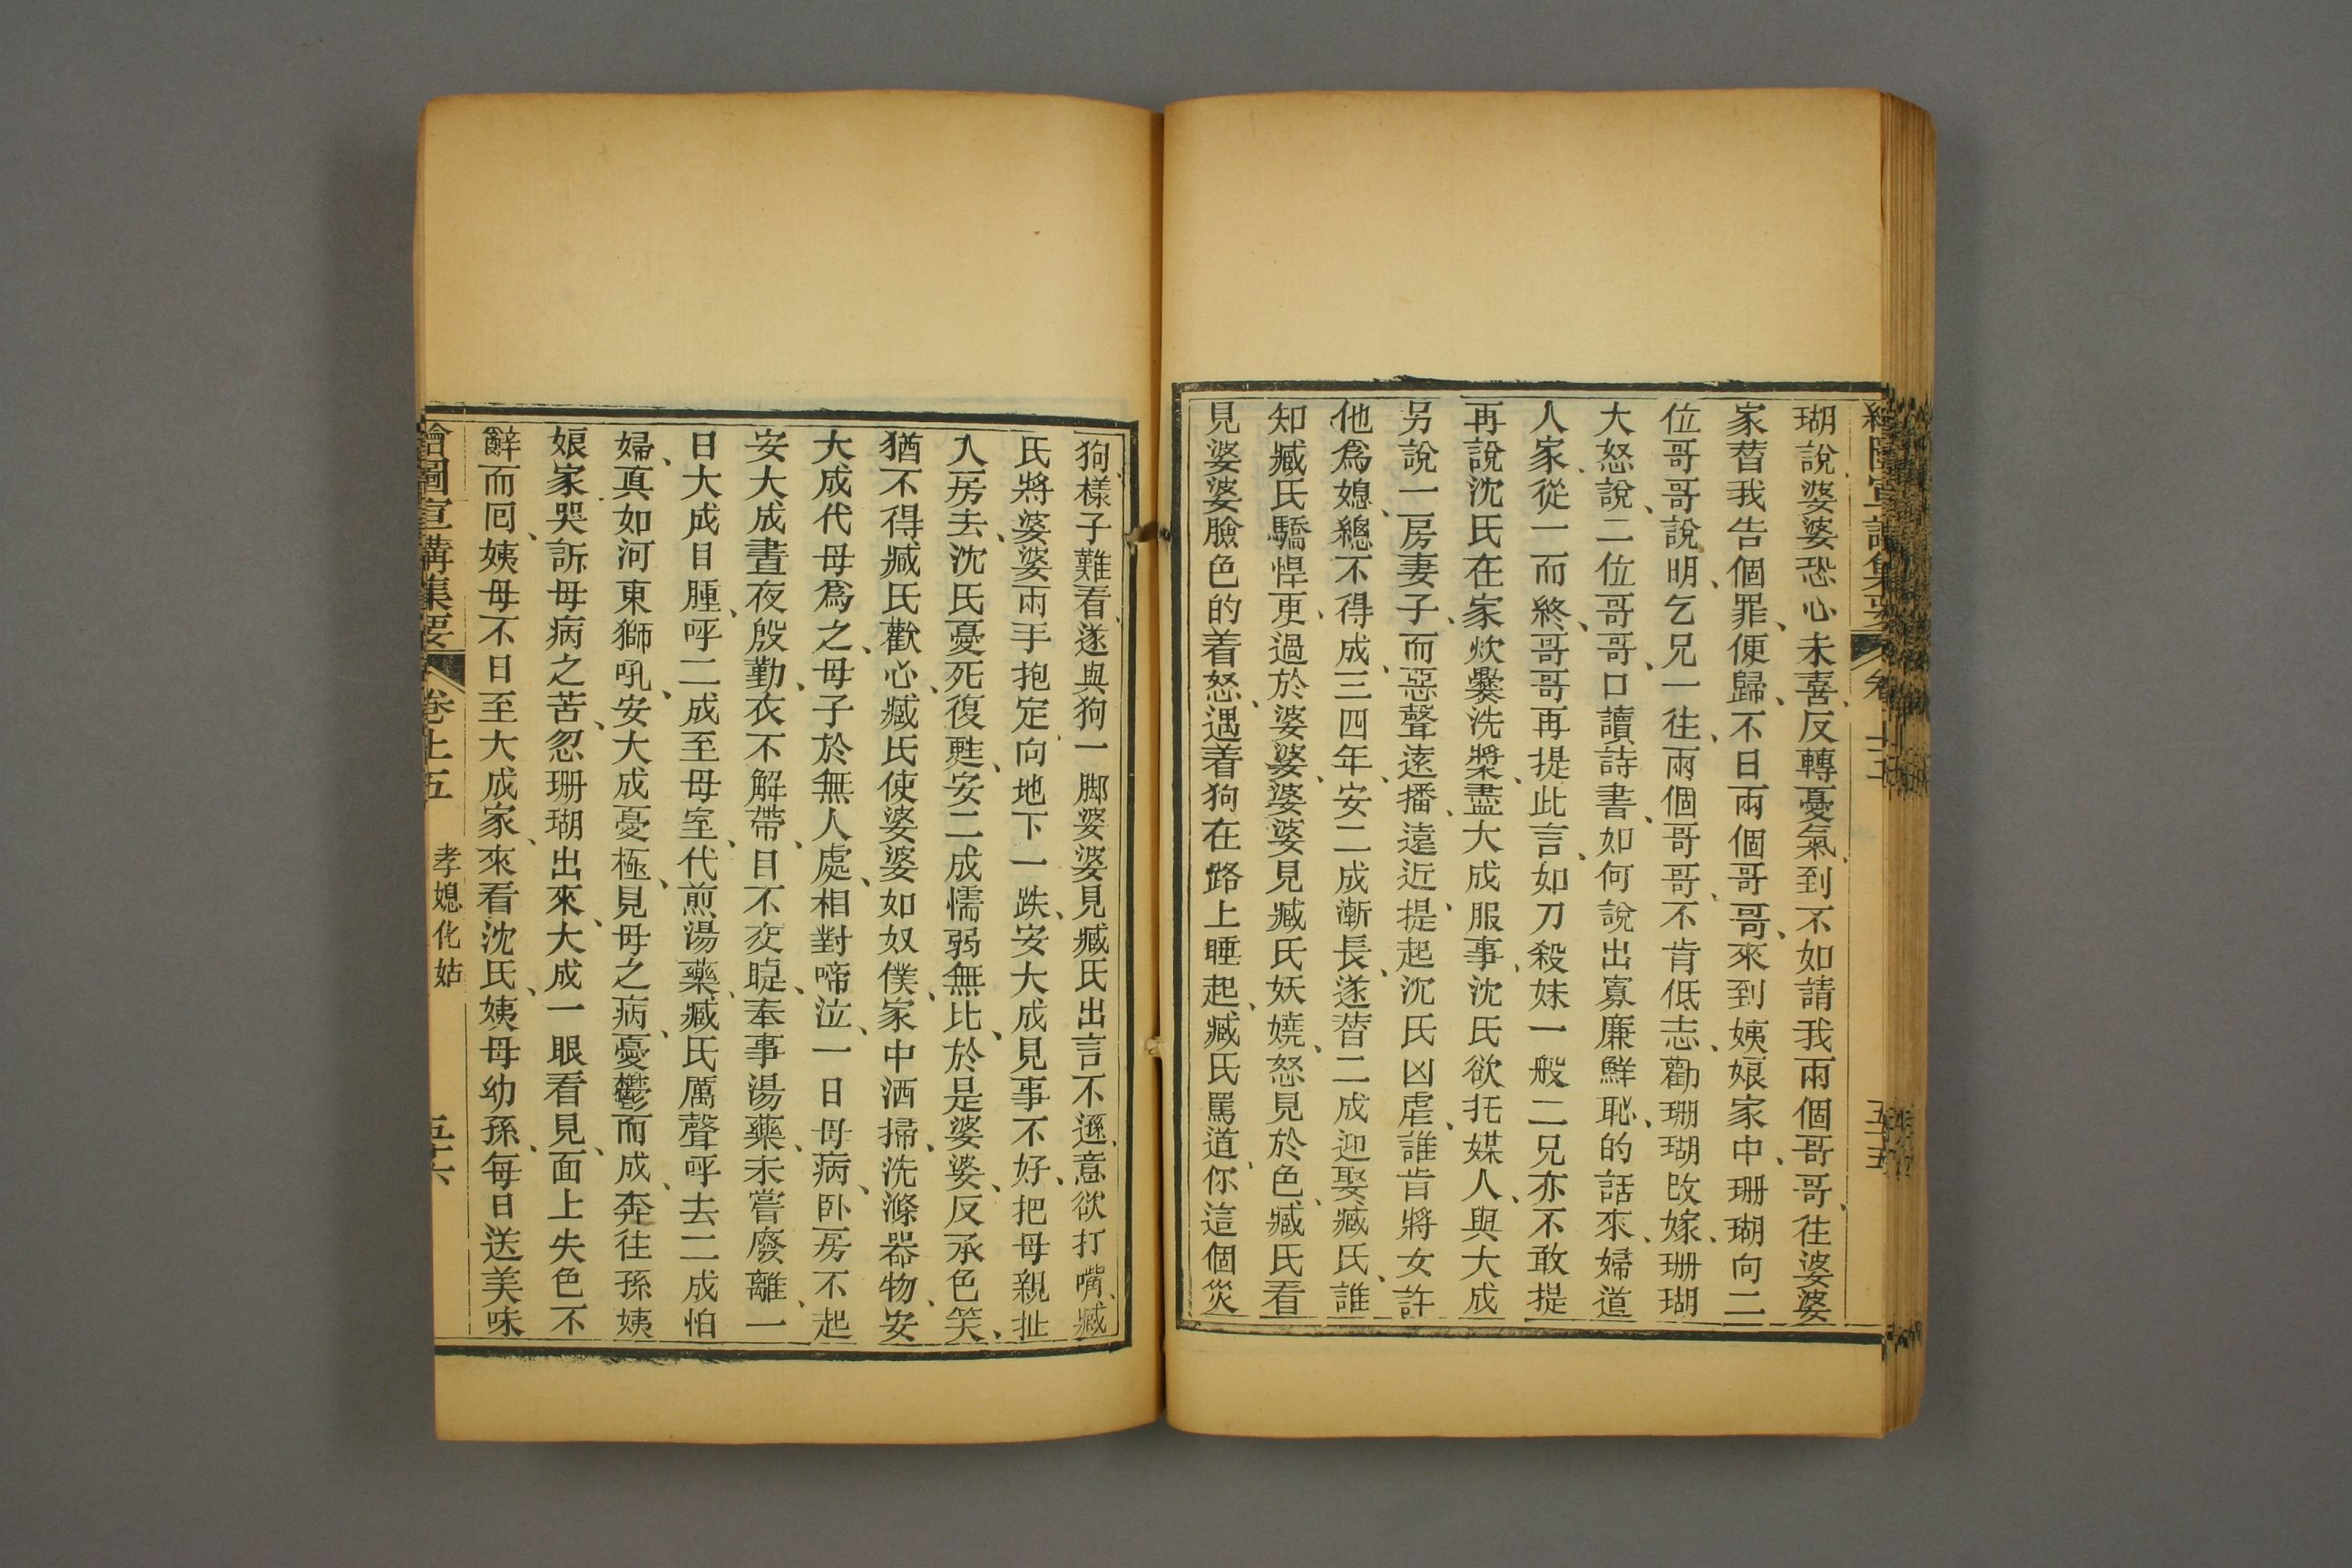 瑚說、婆婆恐心未喜、反轉憂氣、到不如請我兩個哥哥、往婆婆
家替我告個罪、便歸、不日兩個哥哥、來到姨娘家中、珊瑚向二
位哥哥說明、乞兄一往、兩個哥哥、不肯低志、勸珊瑚改嫁、珊瑚
大怒說、二位哥哥、口讀詩書、如何說出寡廉鮮恥、的話來、婦道
人家、從一而終、哥哥再提此言、如刀殺妹一般二兄亦不敢提
再說沈氏在家炊爨洗漿、盡大成服事、沈氏欲托媒人、與大成
另說一房妻子、而惡聲遠播、遠近提起沈氏凶虐、誰肯將女許
他爲媳、總不得成、三四年、安二成漸長、遂替二成迎娶臧氏、誰
知臧氏驕悍更、過於婆婆、婆婆見臧氏妖嬈、怒見於色、臧氏看
見婆婆臉色的着怒、遇着狗在路上睡起、臧氏罵道、你這個災
狗、樣子難看、遂與狗一脚婆婆見臧氏出言不遜、意欲打嘴、臧
氏將婆婆兩手抱定、向地下一跌、安大成見事不好、把母親扯
入房去、沈氏憂死復甦、安二成懦弱無比、於是婆婆、反承色笑、
猶不得臧氏歡心、臧氏使婆婆如奴僕、家中洒掃、洗滌器物、安
大成代母爲之、母子於無人處、相對啼泣、一日母病、卧房不起
安大成晝夜殷勤、衣不解帶、目不交睫、奉事湯藥、未嘗廢離、一
日大成目腫、呼二成至母室、代煎湯藥、臧氏厲聲呼去二成怕
婦、真如河東獅吼、安大成憂極、見母之病、憂鬱而成、奔往孫姨
娘家哭訴母病之苦、忽珊瑚出來、大成一眼看見、面上失色不
辭而回、姨母不日至大成家、來看沈氏、姨母幼孫、每日送美味
繪圖宣講集要 卷上五 孝媳化姑 五十六